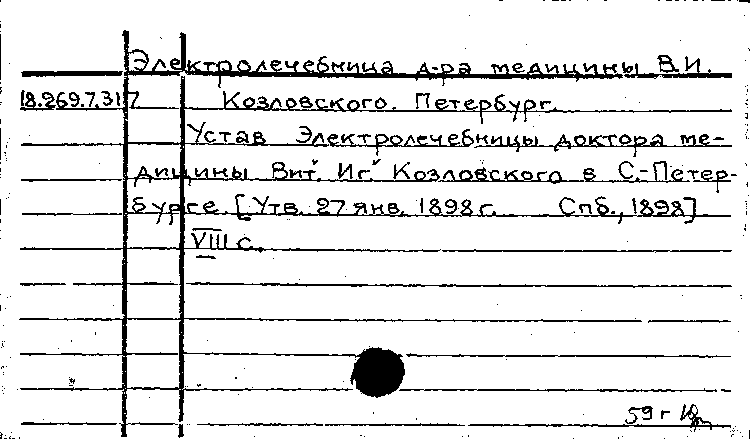 Электролечебница д-ра медицины В.И.
18.269.7.317 Козловского. Петербург.
Устав Электролечебницы доктора ме-
дицины Вит. Иг. Козловского в С.-Петер-
бурге. [Утв. 27 янв. 1898 г. Спб., 1898]
VIII с.
59 г